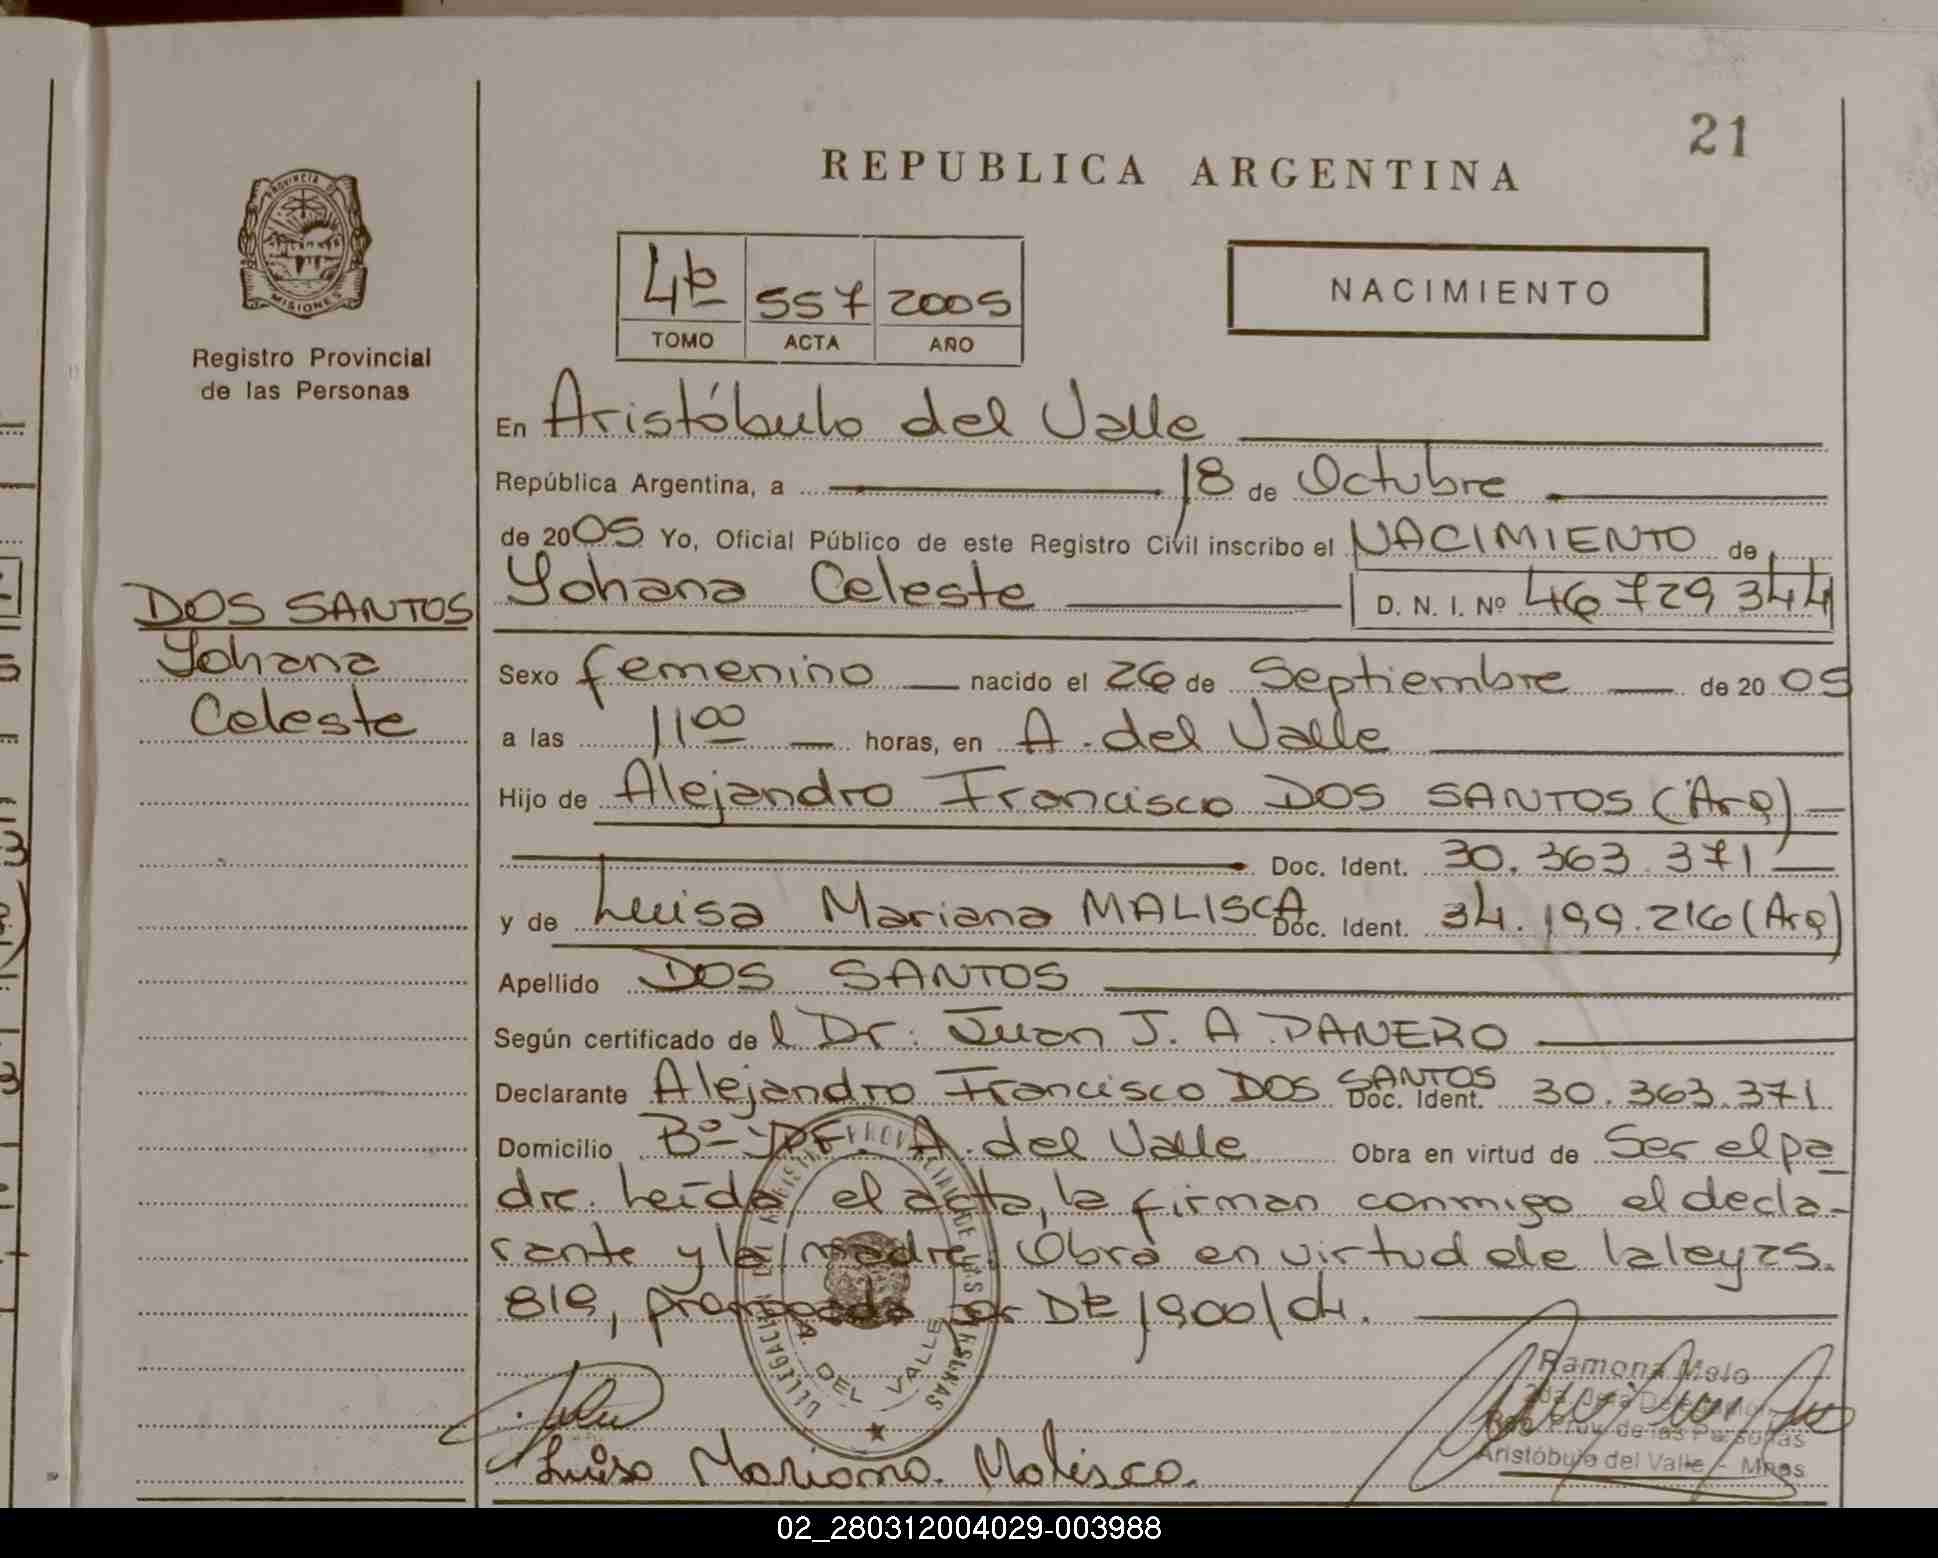 21
REPUBLICA ARGENTINA
PROVINCIA DE
MISIONES
Registro Provincial
de las Personas
4to 557 2005
TOMO ACTA AÑO
NACIMIENTO
En Aristóbulo del Valle
República Argentina, a 18 de Octubre
de 2005 Yo, Oficial Público de este Registro Civil inscribo el NACIMIENTO de
Yohana Celeste D. N. I. Nº 46729344
DOS SANTOS
Yohana
Celeste
Sexo femenino nacido el 26 de Septiembre de 2005
a las 11 00 horas, en A. del Valle
Hijo de Alejandro Francisco DOS SANTOS (Arg)
Doc. Ident. 30.363.371
y de Luisa Mariana MALISCA Doc. Ident. 34.199.216 (Arg)
Apellido DOS SANTOS
Según certificado del Dr. Juan J. A. DANERO
Declarante Alejandro Francisco DOS SANTOS Doc. Ident. 30.363.371
Domicilio Bº YPF. A. del Valle Obra en virtud de Ser el pa
dre. Leída el acta, la firman conmigo el decla-
rante y la madre. Obra en virtud de la ley 25.
819, por 1900/04.
DELEGACION DEL REGISTRO PROVINCIAL DE LAS PERSONAS
A. DEL VALLE
Ramona Melo
Reg. Prov. de las Personas
Aristóbulo del Valle - Mnes
Luisa Mariana. Malisca.
02_280312004029-003988